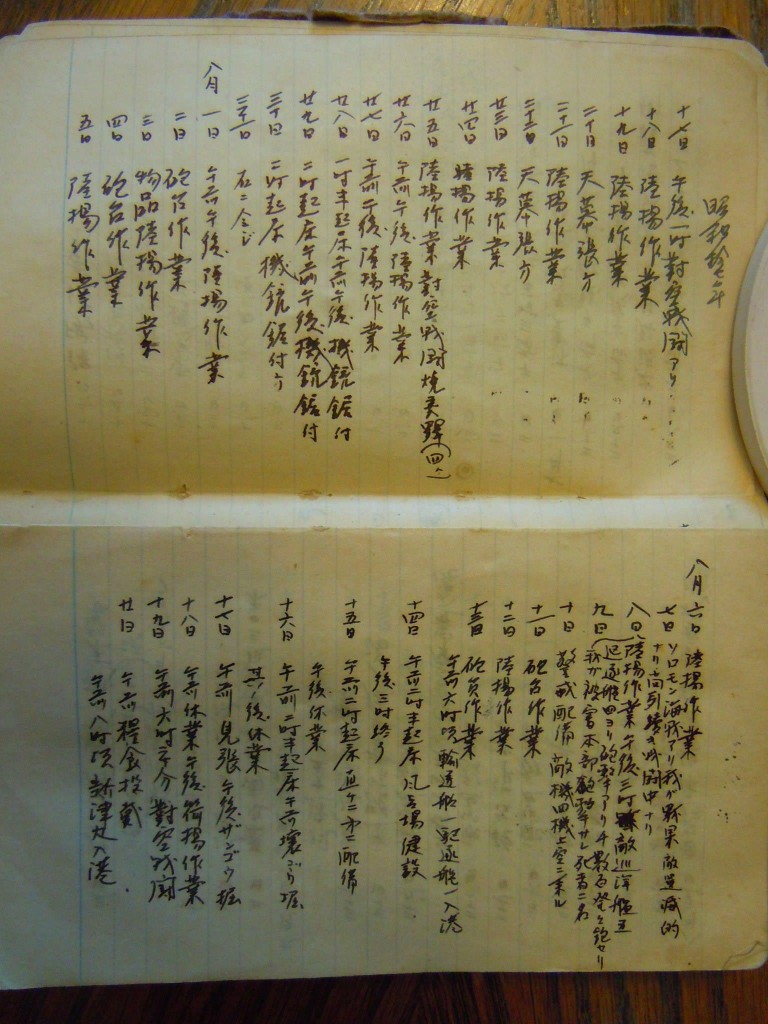 昭和拾七年
十七日 午後一時對空戰闘アリ
十八日 陸揚作業
十九日 陸揚作業
二十日 天幕張方
二十一日 陸揚作業
二十二日 天幕張方
廿三日 陸揚作業
廿四日 陸揚作業
廿五日 陸揚作業對空戰闘焼夷彈(四ヶ)
廿六日 午前午後陸揚作業
廿七日 午前午後陸揚作業
廿八日 一時半起床午前午後機銃据付
廿九日 二時起床午前午後機銃据付
三十日 二時起床機銃据付方
三十一日 右ニ仝ジ
八月一日 午前午後陸揚作業
二日 砲台作業
三日 物品陸揚作業
四日 砲台作業
五日 陸揚作業
八月六日 陸揚作業
七日 ソロモン海戰アリ我ガ戰果敵全滅的
ナリ尚引續キ戰闘中ナリ
八日 陸揚作業午後三時敵巡洋艦五
九日 驅逐艦四ヨリ砲撃アリ
我ガ被害本部 死者二名
十日 警戒配備 敵機四機上空ニ來ル
十一日 砲台作業
十二日 陸揚作業
十三日 砲台作業
午前六時頃輸送船一驅逐艦一入港
十四日 午前二時半起床風呂場健設
午後三時終り
十五日 午前二時起床直チニ第二配備
午後休業
十六日 午前二時半起床午前壕ヅリ堀
其ノ後休業
十七日 午前見張午後ザンゴウ堀
十八日 午前休業午後荷揚作業
十九日 午前六時三十分對空戰闘
廿日 午前糧食投載
午前八時頃 津丸入港